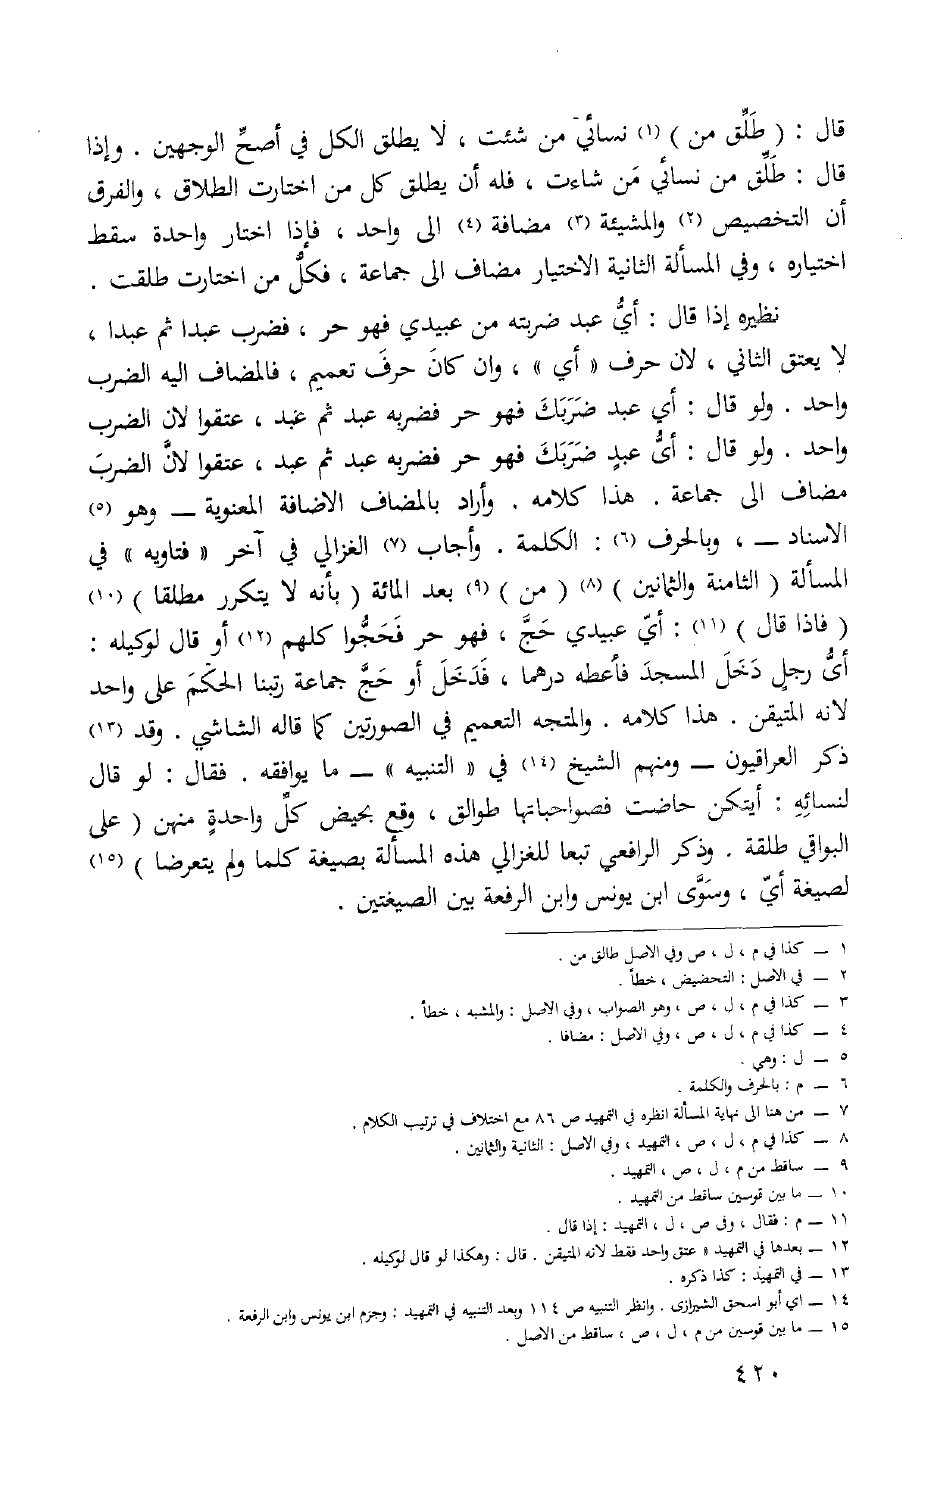 قال : ( طَلِّق من ) (١) نسائي من شئت ، لا يطلق الكل في أصحِّ الوجهين . وإذا
قال : طَلِّق من نسائي مَن شاءت ، فله أن يطلق كل من اختارت الطلاق ، والفرق
أن التخصيص (٢) والمشيئة (٣) مضافة (٤) الى واحد ، فإذا اختار واحدة سقط
اختياره ، وفي المسألة الثانية الاختيار مضاف الى جماعة ، فكلُّ من اختارت طلقت .
نظيره إذا قال : أيُّ عبد ضربته من عبيدي فهو حر ، فضرب عبدا ثم عبدا ،
لا يعتق الثاني ، لان حرف « أي » ، وان كانَ حرفَ تعميم ، فالمضاف اليه الضرب
واحد . ولو قال : أي عبد ضَرَبَكَ فهو حر فضربه عبد ثم عبد ، عتقوا لان الضرب
واحد . ولو قال : أيُّ عبدٍ ضَرَبَكَ فهو حر فضربه عبد ثم عبد ، عتقوا لانَّ الضربَ
مضاف الى جماعة . هذا كلامه . وأراد بالمضاف الاضافة المعنوية ـــ وهو (٥)
الاسناد ـــ ، وبالحرف (٦) : الكلمة . وأجاب (٧) الغزالي في آخر « فتاويه » في
المسألة ( الثامنة والثمانين ) (٨) ( من ) (٩) بعد المائة ( بأنه لا يتكرر مطلقا ) (١٠)
( فاذا قال ) (١١) : أيّ عبيدي حَجَّ ، فهو حر فَحَجُّوا كلهم (١٢) أو قال لوكيله :
أيُّ رجلٍ دَخَلَ المسجدَ فأعطه درهما ، فَدَخَلَ أو حَجَّ جماعة رتبنا الحكمَ على واحد
لانه المتيقن . هذا كلامه . والمتجه التعميم في الصورتين كما قاله الشاشي . وقد (١٣)
ذكر العراقيون ـــ ومنهم الشيخ (١٤) في « التنبيه » ـــ ما يوافقه . فقال : لو قال
لنسائِهِ : أيتكن حاضت فصواحباتها طوالق ، وقع بحيض كلِّ واحدةٍ منهن ( على
البواقي طلقة . وذكر الرافعي تبعا للغزالي هذه المسألة بصيغة كلما ولم يتعرضا ) (١٥)
لصيغة أيّ ، وسَوَّى ابن يونس وابن الرفعة بين الصيغتين .
١ ـ كذا في م ، ل ، ص وفي الاصل طالق من .
٢ ـ في الاصل : التحضيض ، خطأ .
٣ ـ كذا في م ، ل ، ص ، وهو الصواب ، وفي الاصل : والمشبه ، خطأ .
٤ ـ كذا في م ، ل ، ص ، وفي الاصل : مضافا .
٥ ـ ل : وهي .
٦ ـ م : بالحرف والكلمة .
٧ ـ من هنا الى نهاية المسألة انظره في التمهيد ص ٨٦ مع اختلاف في ترتيب الكلام .
٨ ـ كذا في م ، ل ، ص ، التمهيد ، وفي الاصل : الثانية والثمانين .
٩ ـ ساقط من م ، ل ، ص ، التمهيد .
١٠ ـ ما بين قوسين ساقط من التمهيد .
١١ ـ م : فقال ، وفي ص ، ل ، التمهيد : إذا قال .
١٢ ـ بعدها في التمهيد « عتق واحد فقط لانه المتيقن . قال : وهكذا لو قال لوكيله .
١٣ ـ في التمهيد : كذا ذكره .
١٤ ـ اي أبو اسحق الشيرازى . وانظر التنبيه ص ١١٤ وبعد التنبيه في التمهيد : وجزم ابن يونس وابن الرفعة .
١٥ ـ ما بين قوسين من م ، ل ، ص ، ساقط من الاصل .
٤٢٠